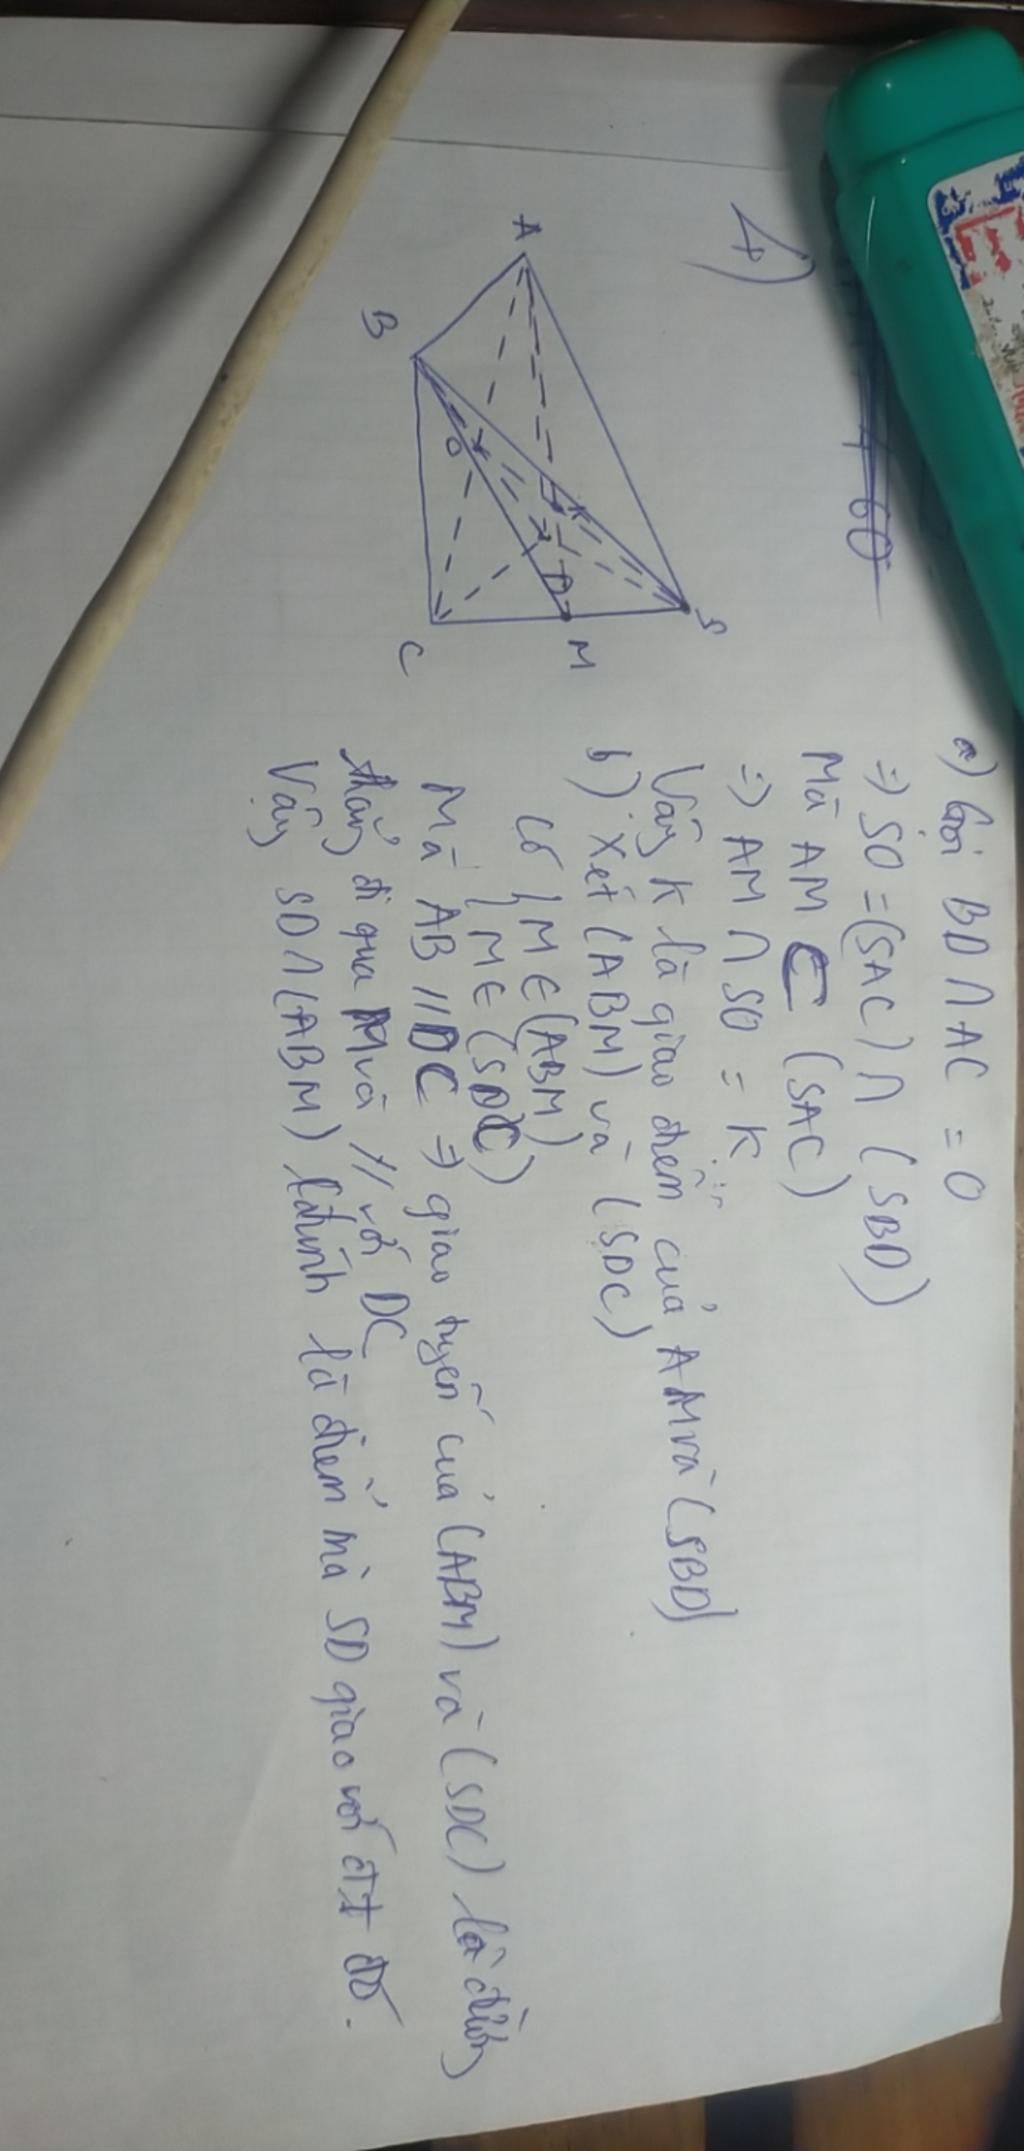 4)
A
B
O
K
D
S
M
C
a) Gọi BD ∩ AC = O
=> SO = (SAC) ∩ (SBD)
Mà AM ⊂ (SAC)
=> AM ∩ SO = K
Vậy K là giao điểm của AM và (SBD)
b) Xét (ABM) và (SDC)
Có { M ∈ (ABM)
{ M ∈ (SDC)
Mà AB // DC => giao tuyến của (ABM) và (SDC) là đường
thẳng đi qua M và // với DC
Vậy SD ∩ (ABM) chính là điểm mà SD giao với đt đó.